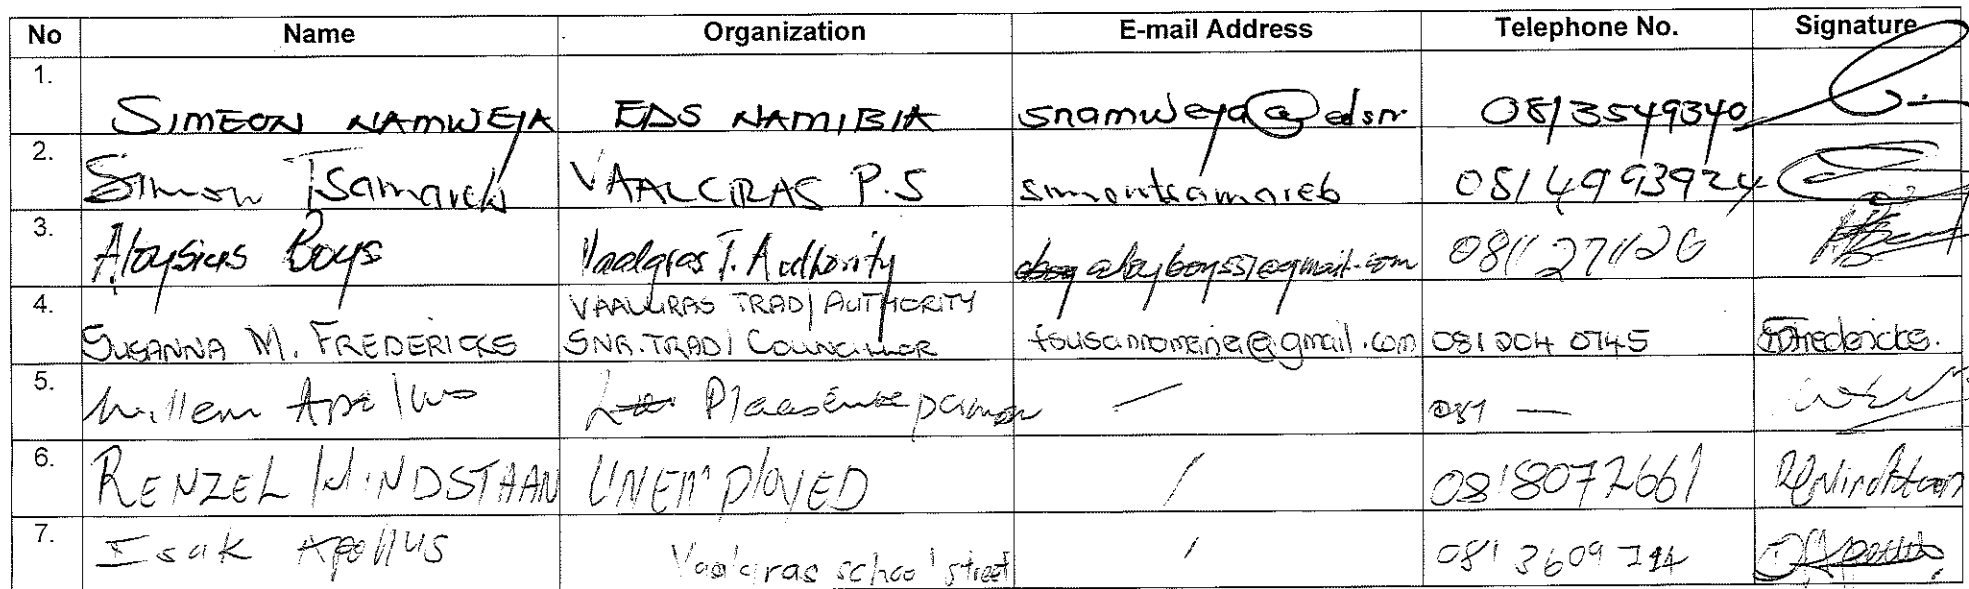 No Name Organization E-mail Address Telephone No. Signature
1. SIMEON NAMWEYA EDS NAMIBIA snamweya@edsn 0813549340
2. Simon Tsamareb VAALGRAS P.S simontsamareb 0814993924
3. Aloysius Boys Vaalgras T. Authority aloyboys57@gmail.com 0811271126
4. VAALGRAS TRAD/ AUTHORITY
SUSANNA M. FREDERICKS SNR. TRAD/ COUNCILLOR @gmail.com 081 204 0745 Fredericks.
5. Willem Apollus — 081 —
6. RENZEL WINDSTAAN UNEMPLOYED / 0818072661 Windstaan
7. Isak Apollus Vaalgras school street / 081 3609 714